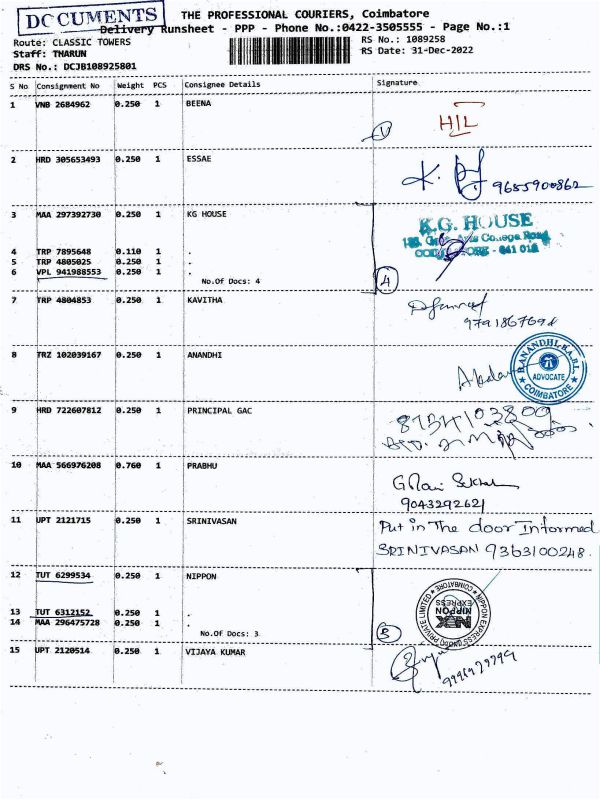 DOCUMENTS
THE PROFESSIONAL COURIERS, Coimbatore
Delivery Runsheet - PPP - Phone No.:0422-3505555 - Page No.:1
Route: CLASSIC TOWERS
RS No. : 1089258
Staff: THARUN
RS Date: 31-Dec-2022
DRS No.: DCJB108925801
S No Consignment No Weight PCS Consignee Details Signature
1 VNB 2684962 0.250 1 BEENA
HIL
2 HRD 305653493 0.250 1 ESSAE
9655900862
3 MAA 297392730 0.250 1 KG HOUSE
K.G. HOUSE
4 TRP 7895648 0.110 1 .
5 TRP 4805025 0.250 1 .
6 VPL 941988553 0.250 1 .
No.Of Docs: 4
4
7 TRP 4804853 0.250 1 KAVITHA
8 TRZ 102039167 0.250 1 ANANDHI
R.ANANDHI,B.A,B.L.
ADVOCATE
COIMBATORE
9 HRD 722607812 0.250 1 PRINCIPAL GAC
10 MAA 566976208 0.760 1 PRABHU
9043292621
11 UPT 2121715 0.250 1 SRINIVASAN
Put in The door Informed
SRINIVASAN 9363100248.
12 TUT 6299534 0.250 1 NIPPON
13 TUT 6312152 0.250 1 .
14 MAA 296475728 0.250 1 .
No.Of Docs: 3
NIPPON EXPRESS
COIMBATORE
15 UPT 2120514 0.250 1 VIJAYA KUMAR